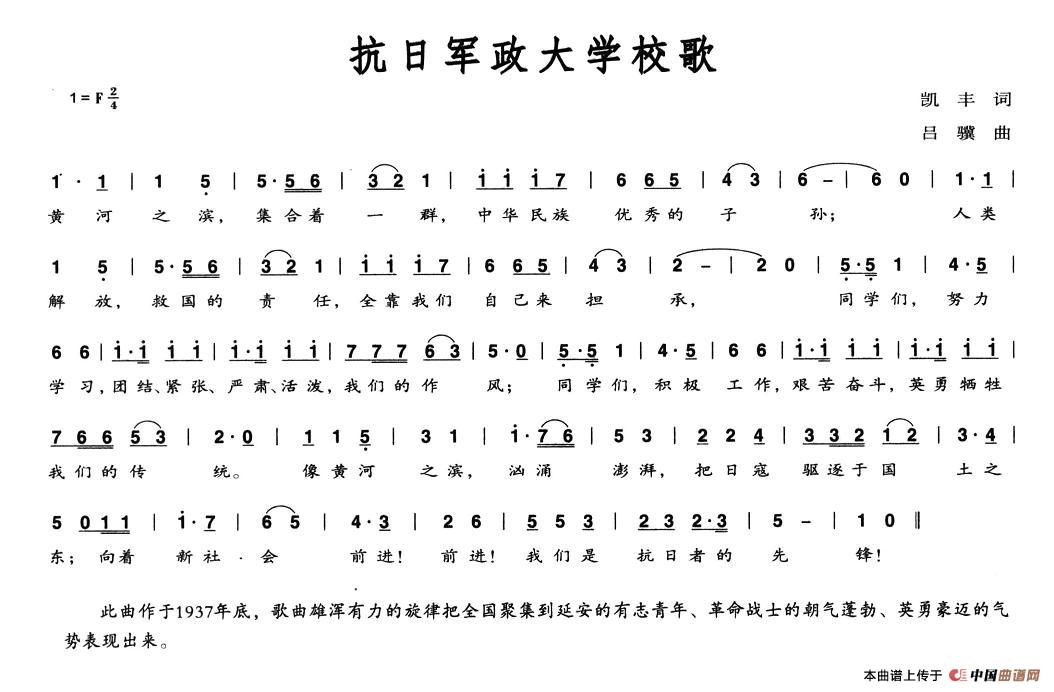 抗日军政大学校歌
1=F 2/4
凯丰 词
吕骥 曲
1· 1 | 1 5 | 5·5 6 | 3 2 1 | 1 1 1 7 | 6 6 5 | 4 3 | 6 - | 6 0 | 1·1 |
黄河之滨，集合着一群，中华民族优秀的子孙；人类
1 5 | 5·5 6 | 3 2 1 | 1 1 1 7 | 6 6 5 | 4 3 | 2 - | 2 0 | 5·5 1 | 4·5 |
解放，救国的责任，全靠我们自己来担承，同学们，努力
6 6 | 1·1 1 1 | 1·1 1 1 | 7 7 7 6 3 | 5·0 | 5·5 1 | 4·5 | 6 6 | 1·1 1 1 | 1·1 1 1 |
学习，团结、紧张、严肃、活泼，我们的作风；同学们，积极工作，艰苦奋斗，英勇牺牲
7 6 6 5 3 | 2·0 | 1 1 5 | 3 1 | 1·7 6 | 5 3 | 2 2 4 | 3 3 2 1 2 | 3·4 |
我们的传统。像黄河之滨，汹涌澎湃，把日寇驱逐于国土之
5 0 1 1 | 1·7 | 6 5 | 4·3 | 2 6 | 5 5 3 | 2 3 2·3 | 5 - | 1 0 ‖
东；向着新社·会前进！前进！我们是抗日者的先锋！
此曲作于1937年底，歌曲雄浑有力的旋律把全国聚集到延安的有志青年、革命战士的朝气蓬勃、英勇豪迈的气
势表现出来。
本曲谱上传于 中国曲谱网